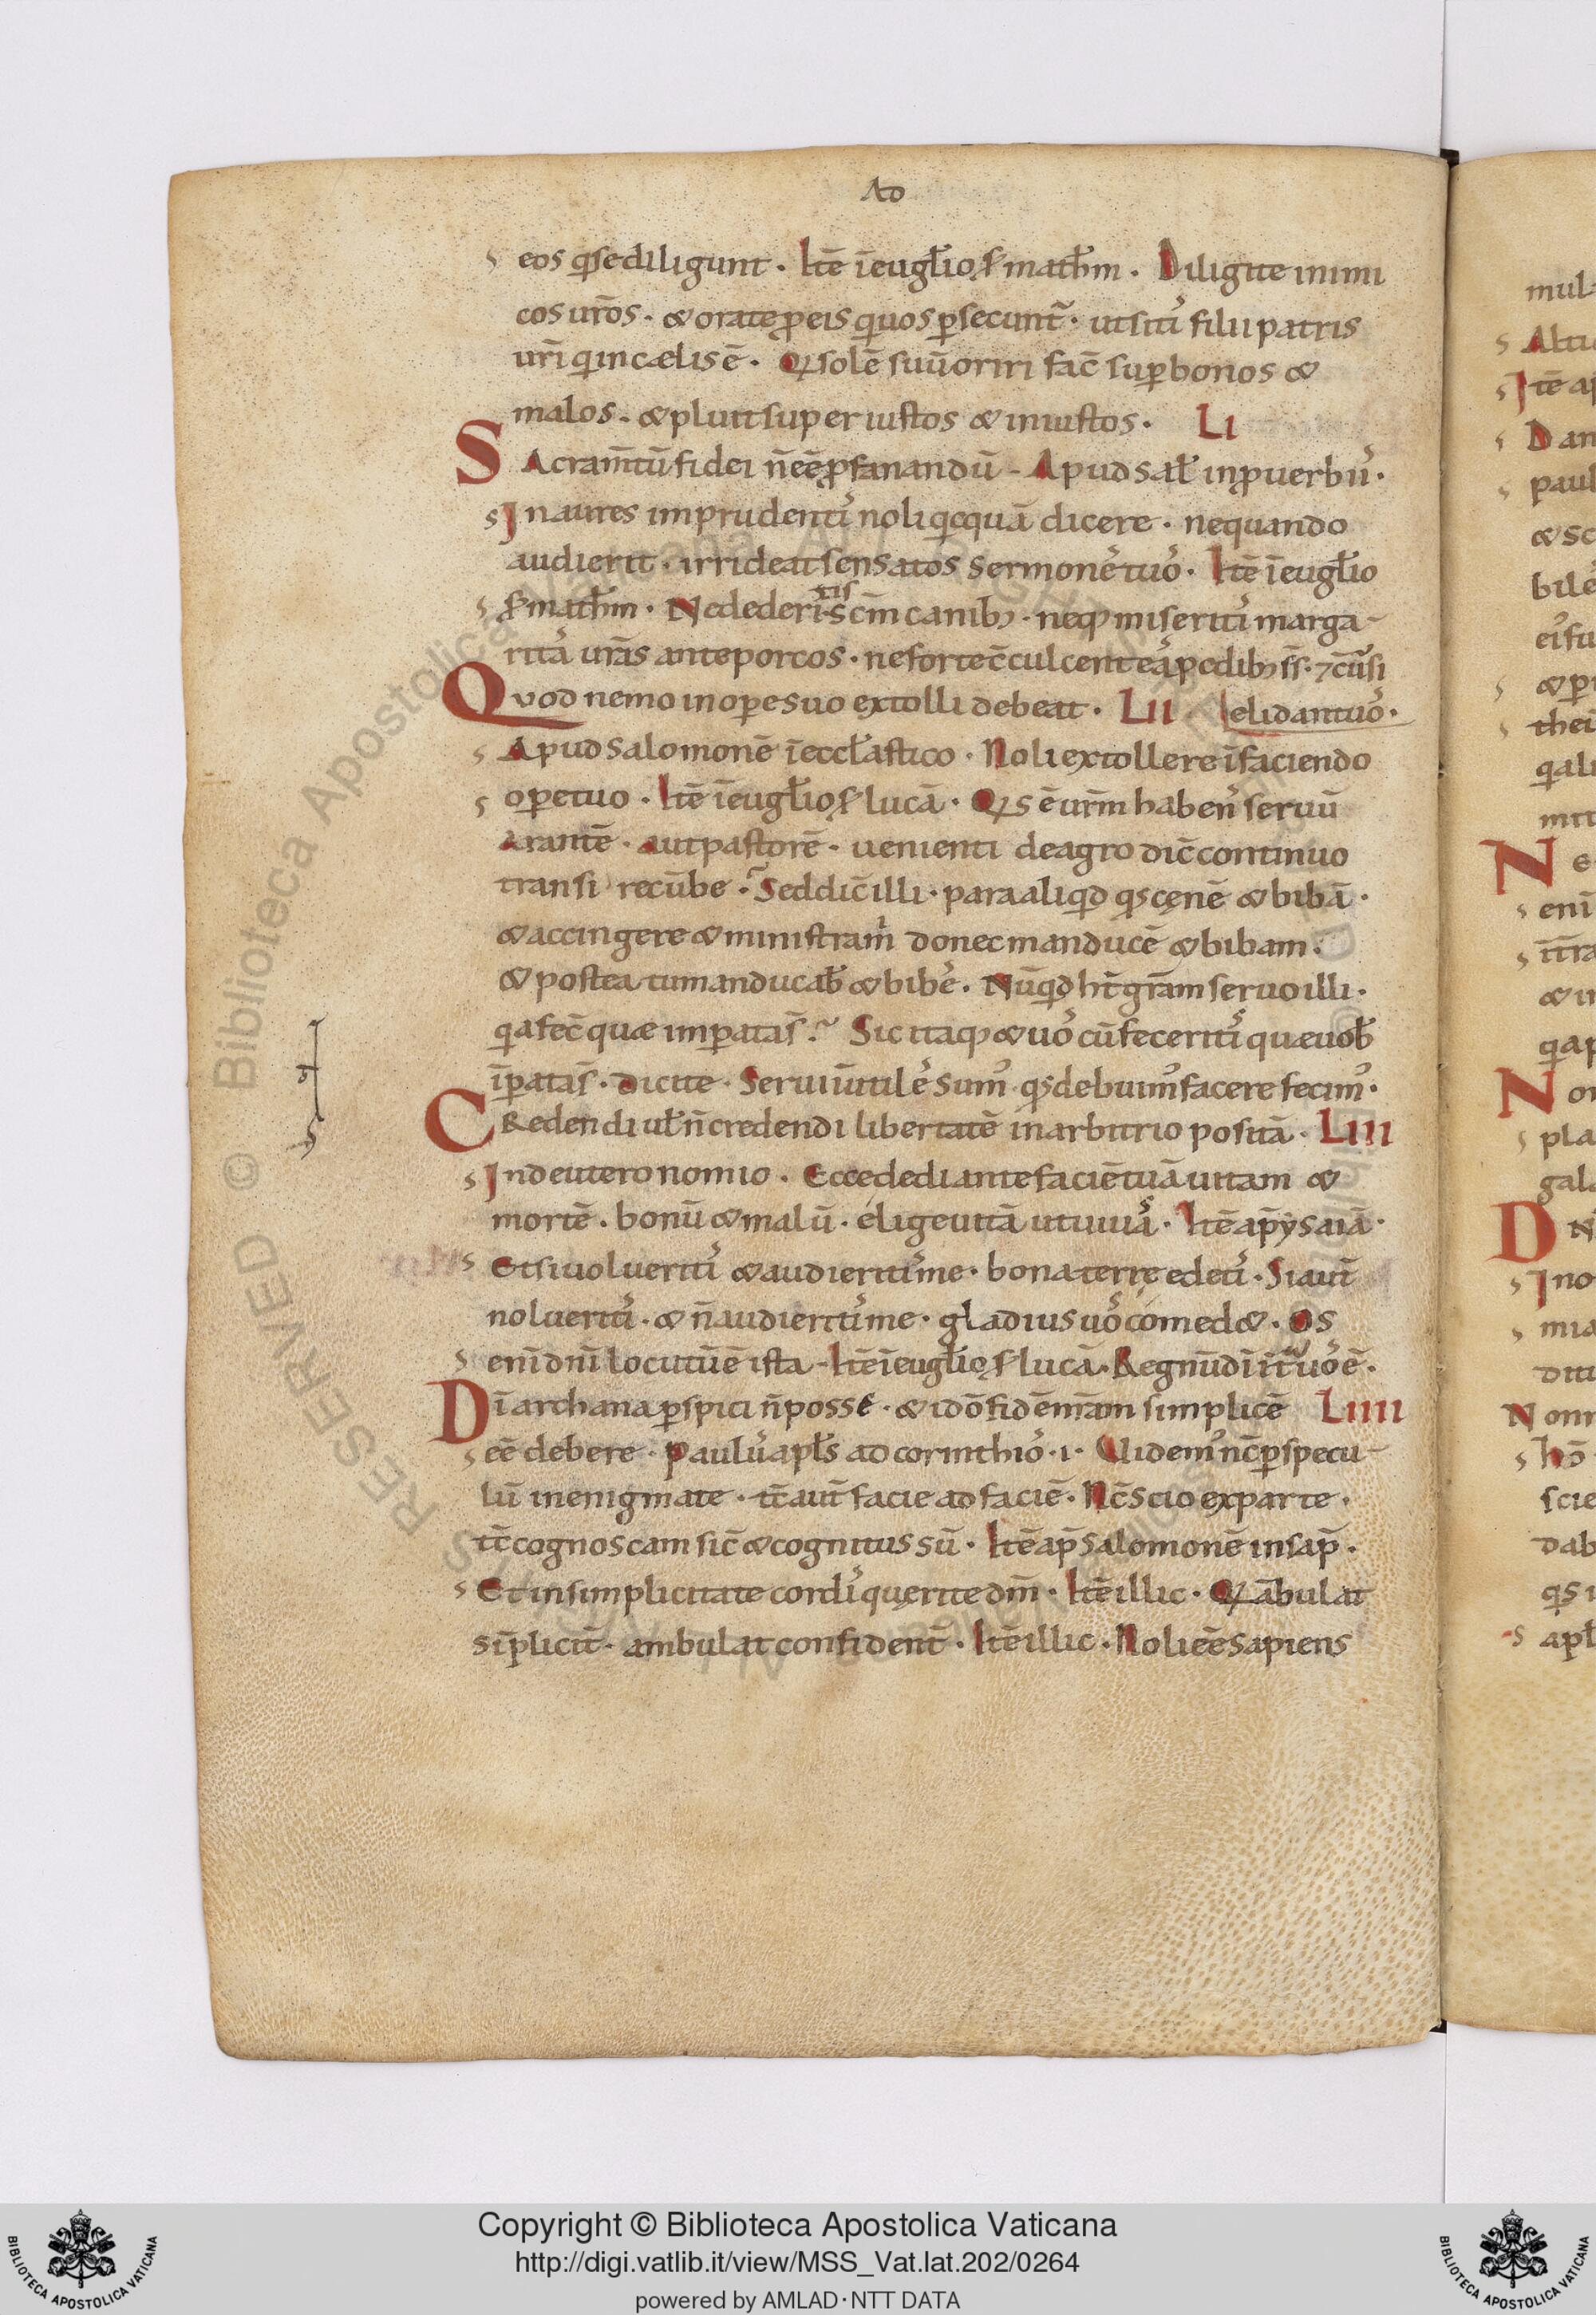 Ad
eos q̄ se diligunt. Itē ī eug̅lio s̄ mathm̄. Diligite inimi
cos ur̄os. & orate p̄ eis quos p̄secunt̄. ut sitis filii patris
ur̄i qui in cælis ē. Qui solē suū oriri fac̄ sup̄ bonos &
malos. & pluit super iustos & iniustos. LI
SAcram̄tū fidei n̄ eē p̄fanandū. Apud sal̄ in p̄uerbiis.
In aures imprudentis noli quicquā dicere. ne quando
audierit. irrideat sensatos sermones tuos. Itē ī eug̅lio
s̄ mathm̄. Ne dederitis sc̄m canib;. neq; miseritis marga-
ritas ur̄as ante porcos. ne forte c̄culcent eas pedib; s̄s. 7 c̄uersi
Quod nemo in ope suo extolli debeat. LII elidant uos.
Apud salomonē ī eccl̄astico. Noli extollere ī faciendo
ope tuo. Itē ī eug̅lio s̄ lucā. Quis ē ur̄m habens seruū
arantē. aut pastorē. uenienti de agro dic̄ continuo
transi recūbe. Sed dic̄ illi. para aliquid quod cęnē & bibā.
& accingere & ministra m̄ donec manducē & bibam.
& postea tu manducab̄ & bibes. Nūquid ht̄ gr̄am seruo illi.
quia fec̄ quæ imp̄ata s̄. Sic itaq; & uos cū feceritis quæ uob̄
īp̄ata s̄. dicite. Serui īutiles sumus quod debuimus facere fecimus.
Credendi ul̄ n̄ credendi libertatē in arbitrio positā. LIII
In deuteronomio. Ecce dedi ante faciē tuā uitam &
mortē. bonū & malū. elige uitā ut uiuas. Itē ap̄ ysaiā.
Et si uolueritis & audieritis me. bona terrę edetis. Si aut̄
nolueritis. & n̄ audieritis me. gladius uos comed&. Os
enī dn̄i locutū ē ista. Itē ī eug̅lio s̄ lucā. Regnū dī īt̄ uos ē.
Dī archana p̄spici n̄ posse. & idō fidē nr̄am simplicē LIIII
eē debere. Paulus apl̄s ad corinthios. I. Uidemus nc̄ p̄ specu-
lū in enigmate. tc̄ aut̄ facie ad faciē. Nc̄ scio ex parte.
tc̄ cognoscam sic̄ & cognitus sū. Itē ap̄ salomonē in sap̄.
Et in simplicitate cordis quęrite dm̄. Itē illic. Qui ābulat
sīplicit̄. ambulat confident̄. Itē illic. Noli eē sapiens
Copyright © Biblioteca Apostolica Vaticana
http://digi.vatlib.it/view/MSS_Vat.lat.202/0264
powered by AMLAD·NTT DATA